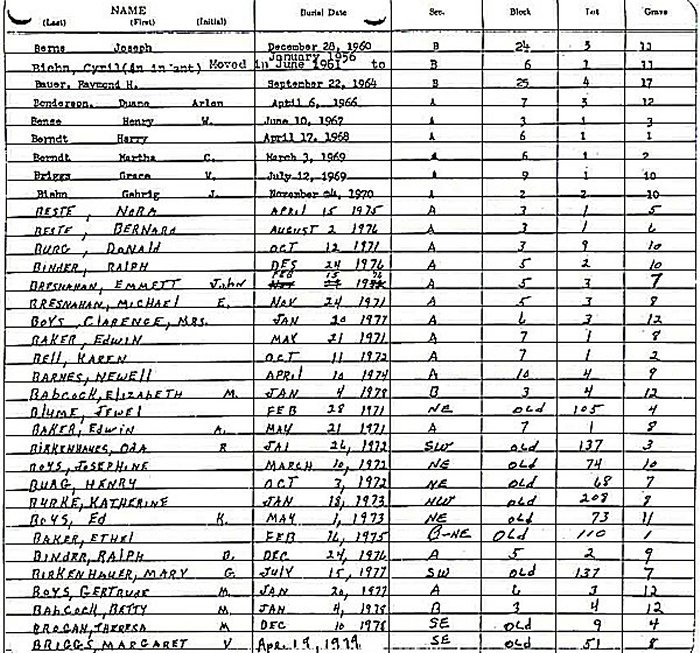 NAME Burial Date Sec. Block Lot Grave
(Last) (First) (Initial)
Berns Joseph December 28, 1960 B 24 3 11
January 1956
Biehn, Cyril(An infant) Moved in June 1961 to B 6 1 11
Bauer, Raymond H. September 22, 1964 B 25 4 17
Benderson, Duane Arlen April 6, 1966 A 7 3 12
Bense Henry W. June 10, 1967 A 3 1 3
Berndt Harry April 17, 1968 A 6 1 1
Berndt Martha C. March 3, 1969 A 6 1 2
Briggs Grace V. July 12, 1969 A 9 1 10
Biehn Gehrig J. November 24, 1970 A 2 2 10
BESTE, NORA APRIL 15 1975 A 3 1 5
BESTE, BERNARD AUGUST 2 1976 A 3 1 6
BURG, DONALD OCT 12 1971 A 3 9 10
BINDER, RALPH DES 24 1976 A 5 2 10
FEB 15 76
BRESNAHAN, EMMETT John A 5 3 7
BRESNAHAN, MICHAEL E. NOV 24 1971 A 5 3 8
BOYS, CLARENCE, MRS. JAN 20 1977 A 6 3 12
BAKER, EDWIN MAY 21 1971 A 7 1 8
BELL, KAREN OCT 11 1972 A 7 1 2
BARNES, NEWELL APRIL 10 1974 A 10 4 9
BABCOCK, ELIZABETH M. JAN 4 1978 B 3 4 12
BLUME, JEWEL FEB 28 1971 NE OLD 105 4
BAKER, EDWIN A. MAY 21 1971 A 7 1 8
BIRKENHAUER, ODA R JAI 26, 1972 SW OLD 137 3
BOYS, JOSEPHINE MARCH 10, 1972 NE OLD 74 10
BURG, HENRY OCT 3, 1972 NE OLD 68 7
BURKE, KATHERINE JAN 18, 1973 NW OLD 208 8
BOYS, Ed K. MAY 1, 1973 NE OLD 73 11
BAKER, ETHEL FEB 16, 1975 B-NE OLD 110 1
BINDER, RALPH B. DEC 24, 1976 A 5 2 9
BIRKENHAUER, MARY G. JULY 15, 1977 SW OLD 137 7
BOYS, GERTRUDE M. JAN 20, 1977 A 6 3 12
BABCOCK, BETTY M. JAN 4, 1978 B 3 4 12
BROGAN, THERESA M DEC 10 1978 SE OLD 9 4
BRIGGS, MARGARET V Apr. 19, 1979 SE OLD 51 8